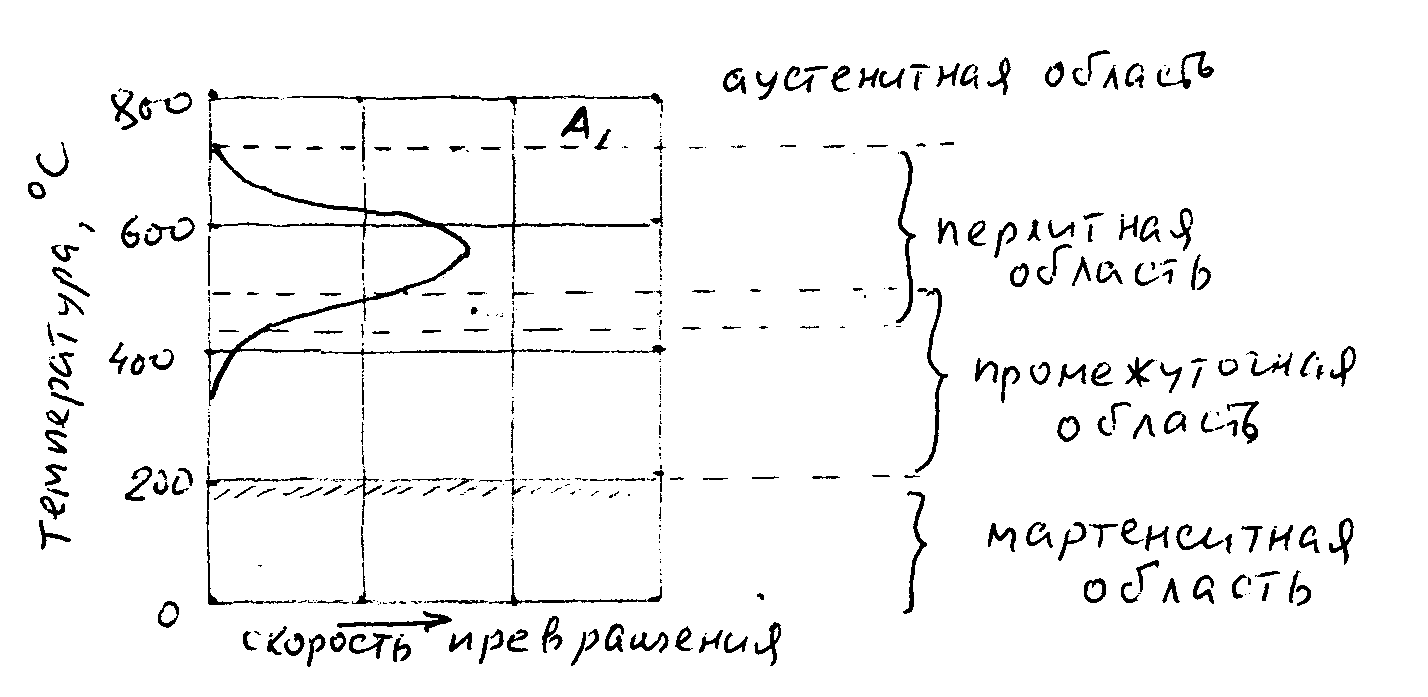 аустенитная область
800
A1
Температура, °C
600
перлитная
область
400
промежуточная
область
200
мартенситная
область
0
скорость превращения